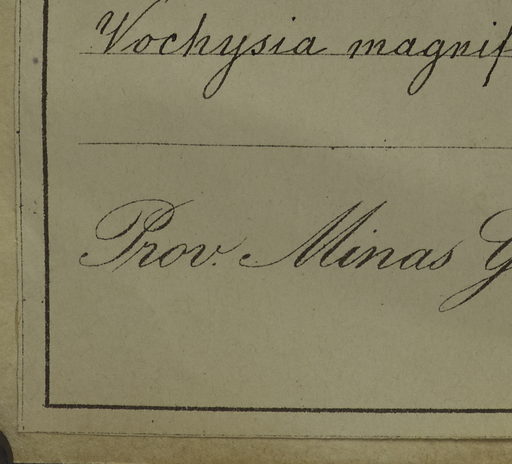 Vochysia magnif
Prov. Minas G